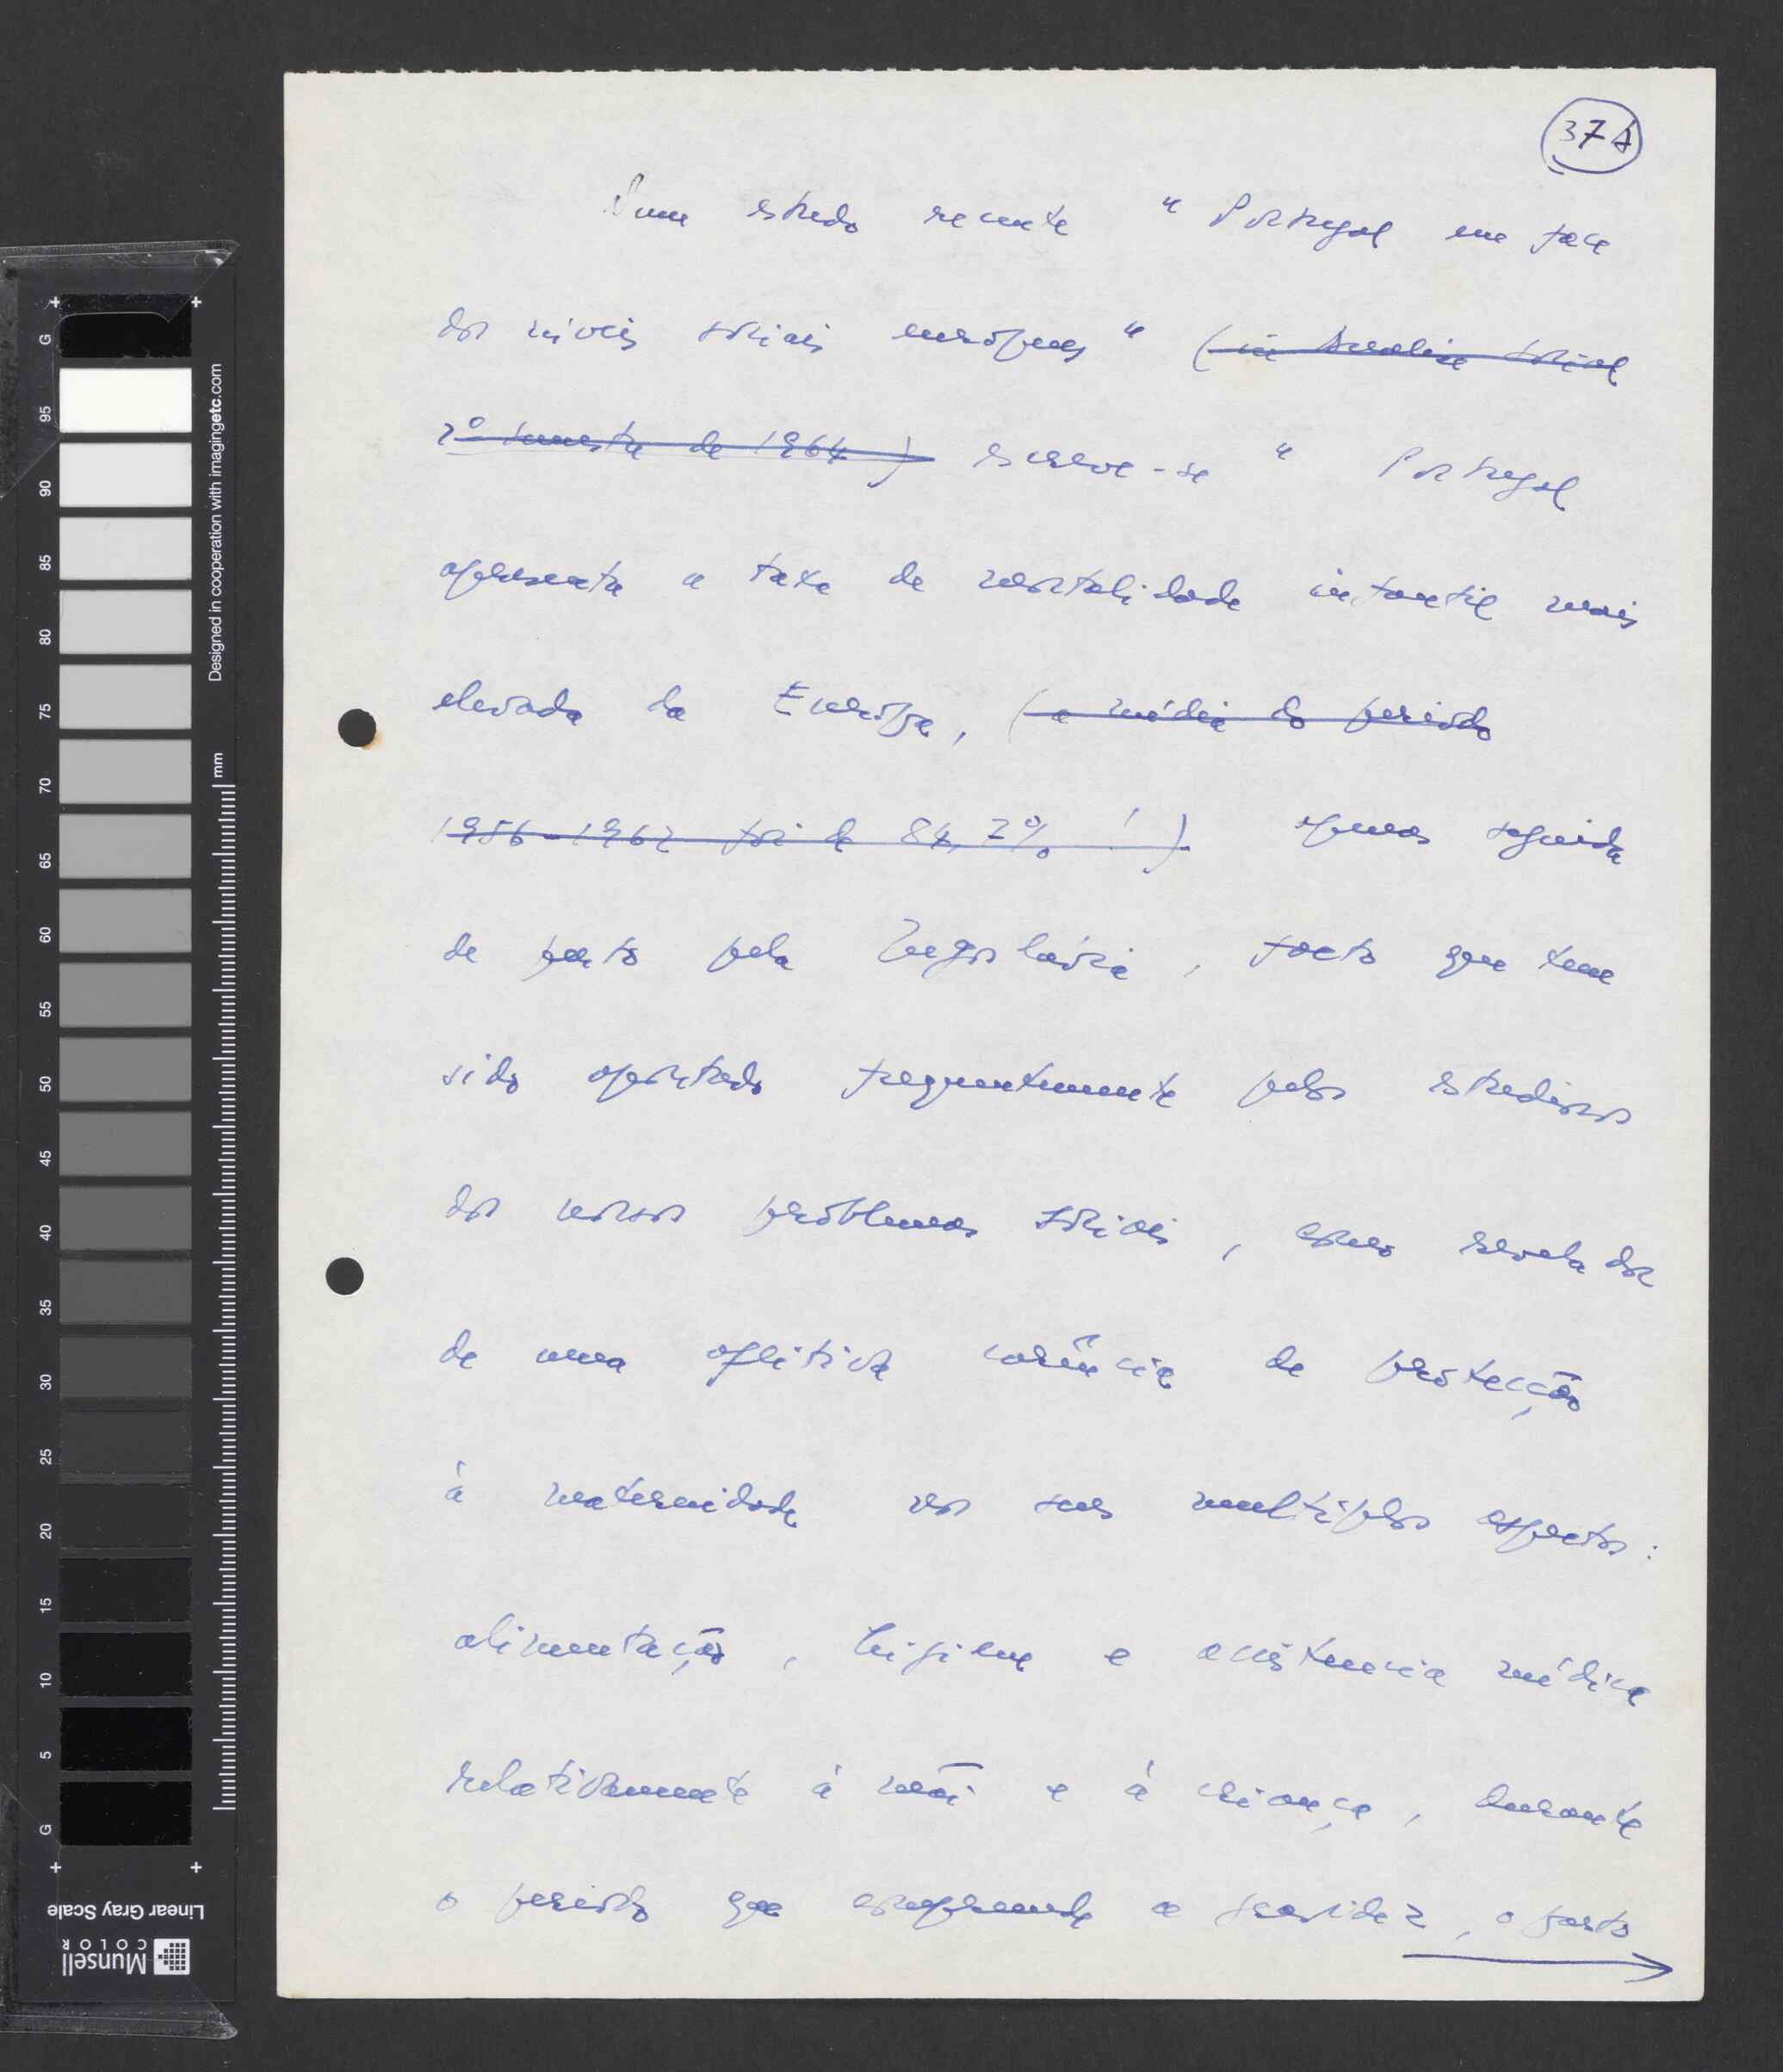 37A
Num estudo recente " Portugal em face
dos níveis sociais europeus " ( in Análise Social
2º semestre de 1964 ) escreve-se " Portugal
apresenta a taxa de mortalidade infantil mais
elevada da Europa, ( a média do período
1956-1962 foi de 84,2% ! ) apenas seguida
de perto pela Jugoslávia, facto que tem
sido apontado frequentemente pelos estudiosos
dos nossos problemas sociais, como revelador
de uma aflitiva carência de protecção
à maternidade nos seus multiplos aspectos :
alimentação, higiene e assistencia médica
relativamente à mãi e à criança, durante
o periodo que compreende a gravidez, o parto
G
95
90
85
80
75
70
65
60
55
50
45
40
35
30
25
20
15
10
5
G
mm
Designed in cooperation with imagingetc.com
Linear Gray Scale
Munsell
COLOR